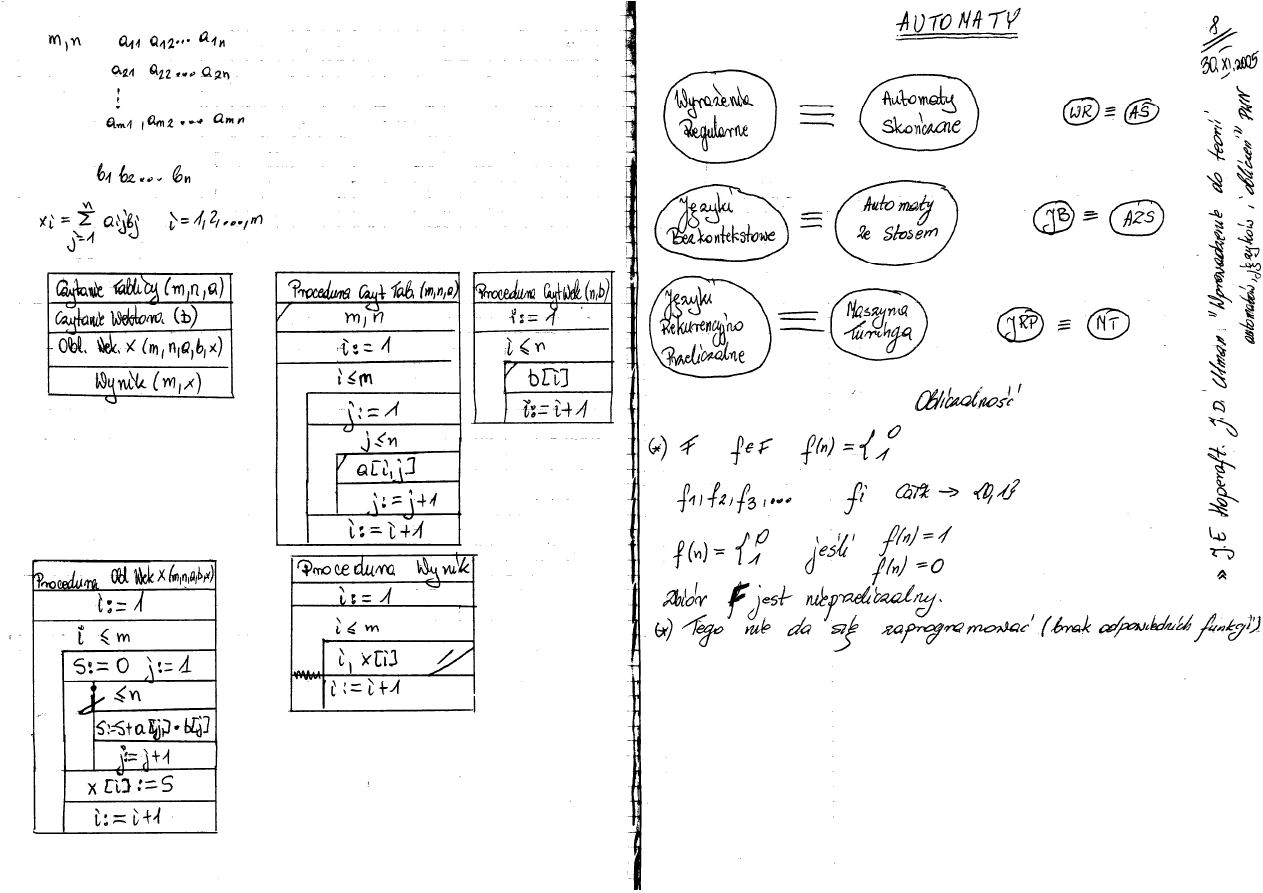 m,n a11 a12... a1n
a21 a22 ... a2n
am1, am2 ... amn
b1 b2 ... bn
xi = n∑j=1 aijbj i = 1,2,...,m
Czytanie Tablicy (m,n,a)
Czytanie Wektora (b)
Obl. Wek. X (m,n,a,b,x)
Wynik (m,x)
Procedura Czyt Tab. (m,n,a)
m,n
i:= 1
i ≤ m
j:= 1
j ≤ n
a[i,j]
j:= j+1
i:= i+1
Procedura CzytWek (n,b)
i:= 1
i ≤ n
b[i]
i:= i+1
Procedura Obl Wek X (m,n,a,b,x)
i:= 1
i ≤ m
S:= 0 j:= 1
j ≤ n
S:=S+a[i,j] • b[j]
j:= j+1
x[i]:= S
i:= i+1
Procedura Wynik
i:= 1
i ≤ m
i, x[i]
i:= i+1
AUTOMATY
8
30.XI.2005
Wyrażenia
Regularne
≡
Automaty
Skończone
WR ≡ AS
Języki
Bezkontekstowe
≡
Automaty
ze Stosem
JB ≡ AZS
Języki
Rekurencyjno
Przeliczalne
≡
Maszyna
Turinga
JRP ≡ MT
Obliczalność
(*) F f∈F f(n) = { 0 1
f1, f2, f3, ... fi Całk → {0,1}
f(n) = { 0 1 jeśli f(n) = 1
f(n) = 0
Zbiór F jest nieprzeliczalny.
(*) Tego nie da się zaprogramować (brak odpowiednich funkcji)
» J.E Hopcraft. J.D. Ulman "Wprowadzenie do teorii
automatów, języków i obliczeń" PWN